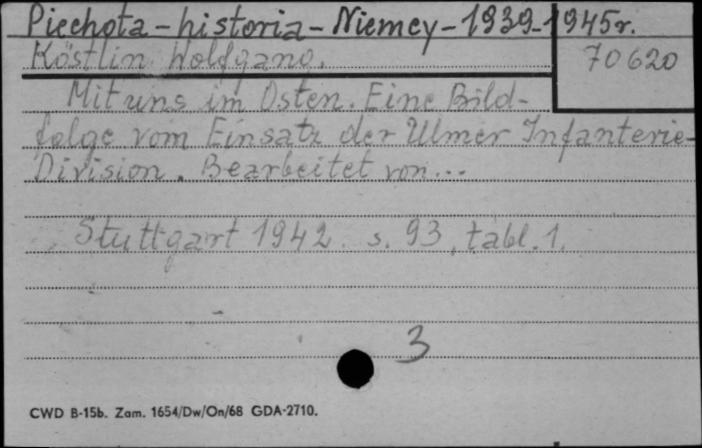 Piechota - historia - Niemcy - 1939-1945r.
Köstlin Wolfgang.
70620
Mit uns im Osten. Eine Bild-
folge vom Einsatz der Ulmer Infanterie-
Division. Bearbeitet von...
Stuttgart 1942. s. 93, tabl. 1.
3
CWD B-15b. Zam. 1654/Dw/On/68 GDA-2710.